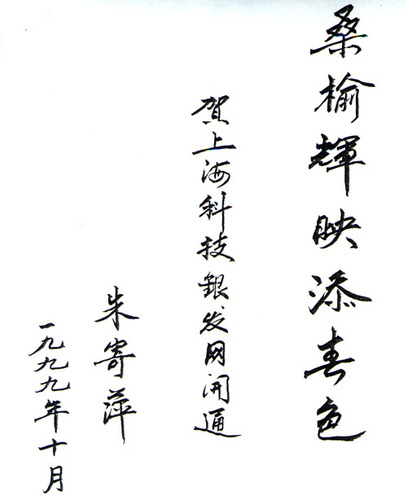 桑榆輝映添春色
贺上海科技銀发网开通
朱寄萍
一九九九年十月